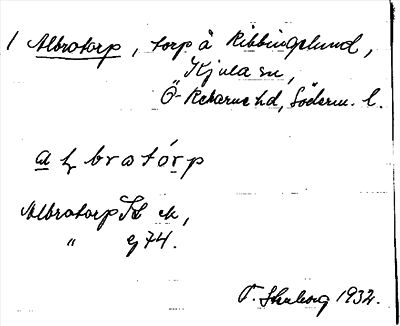 1 Albrotorp, torp å Ribbingelund,
Kjula sn,
Ö-Rekarne hd, Söderm. l.
a l bratórp
Albrotorp Jk ek,
" g 74.
1932.